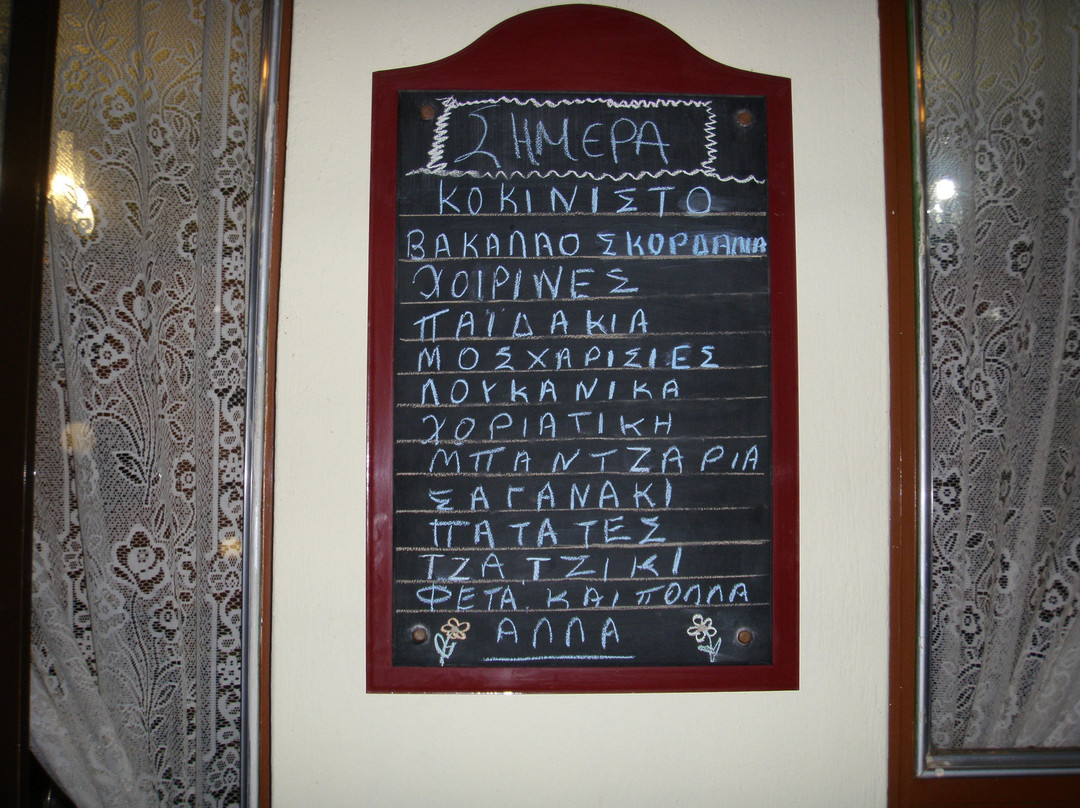 ΣΗΜΕΡΑ
ΚΟΚΙΝΙΣΤΟ
ΒΑΚΑΛΑΟ ΣΚΟΡΔΑΛΙΑ
ΧΟΙΡΙΝΕΣ
ΠΑΙΔΑΚΙΑ
ΜΟΣΧΑΡΙΣΙΕΣ
ΛΟΥΚΑΝΙΚΑ
ΧΟΡΙΑΤΙΚΗ
ΜΠΑΝΤΖΑΡΙΑ
ΣΑΓΑΝΑΚΙ
ΠΑΤΑΤΕΣ
ΤΖΑΤΖΙΚΙ
ΦΕΤΑ ΚΑΙ ΠΟΛΛΑ
ΑΛΛΑ